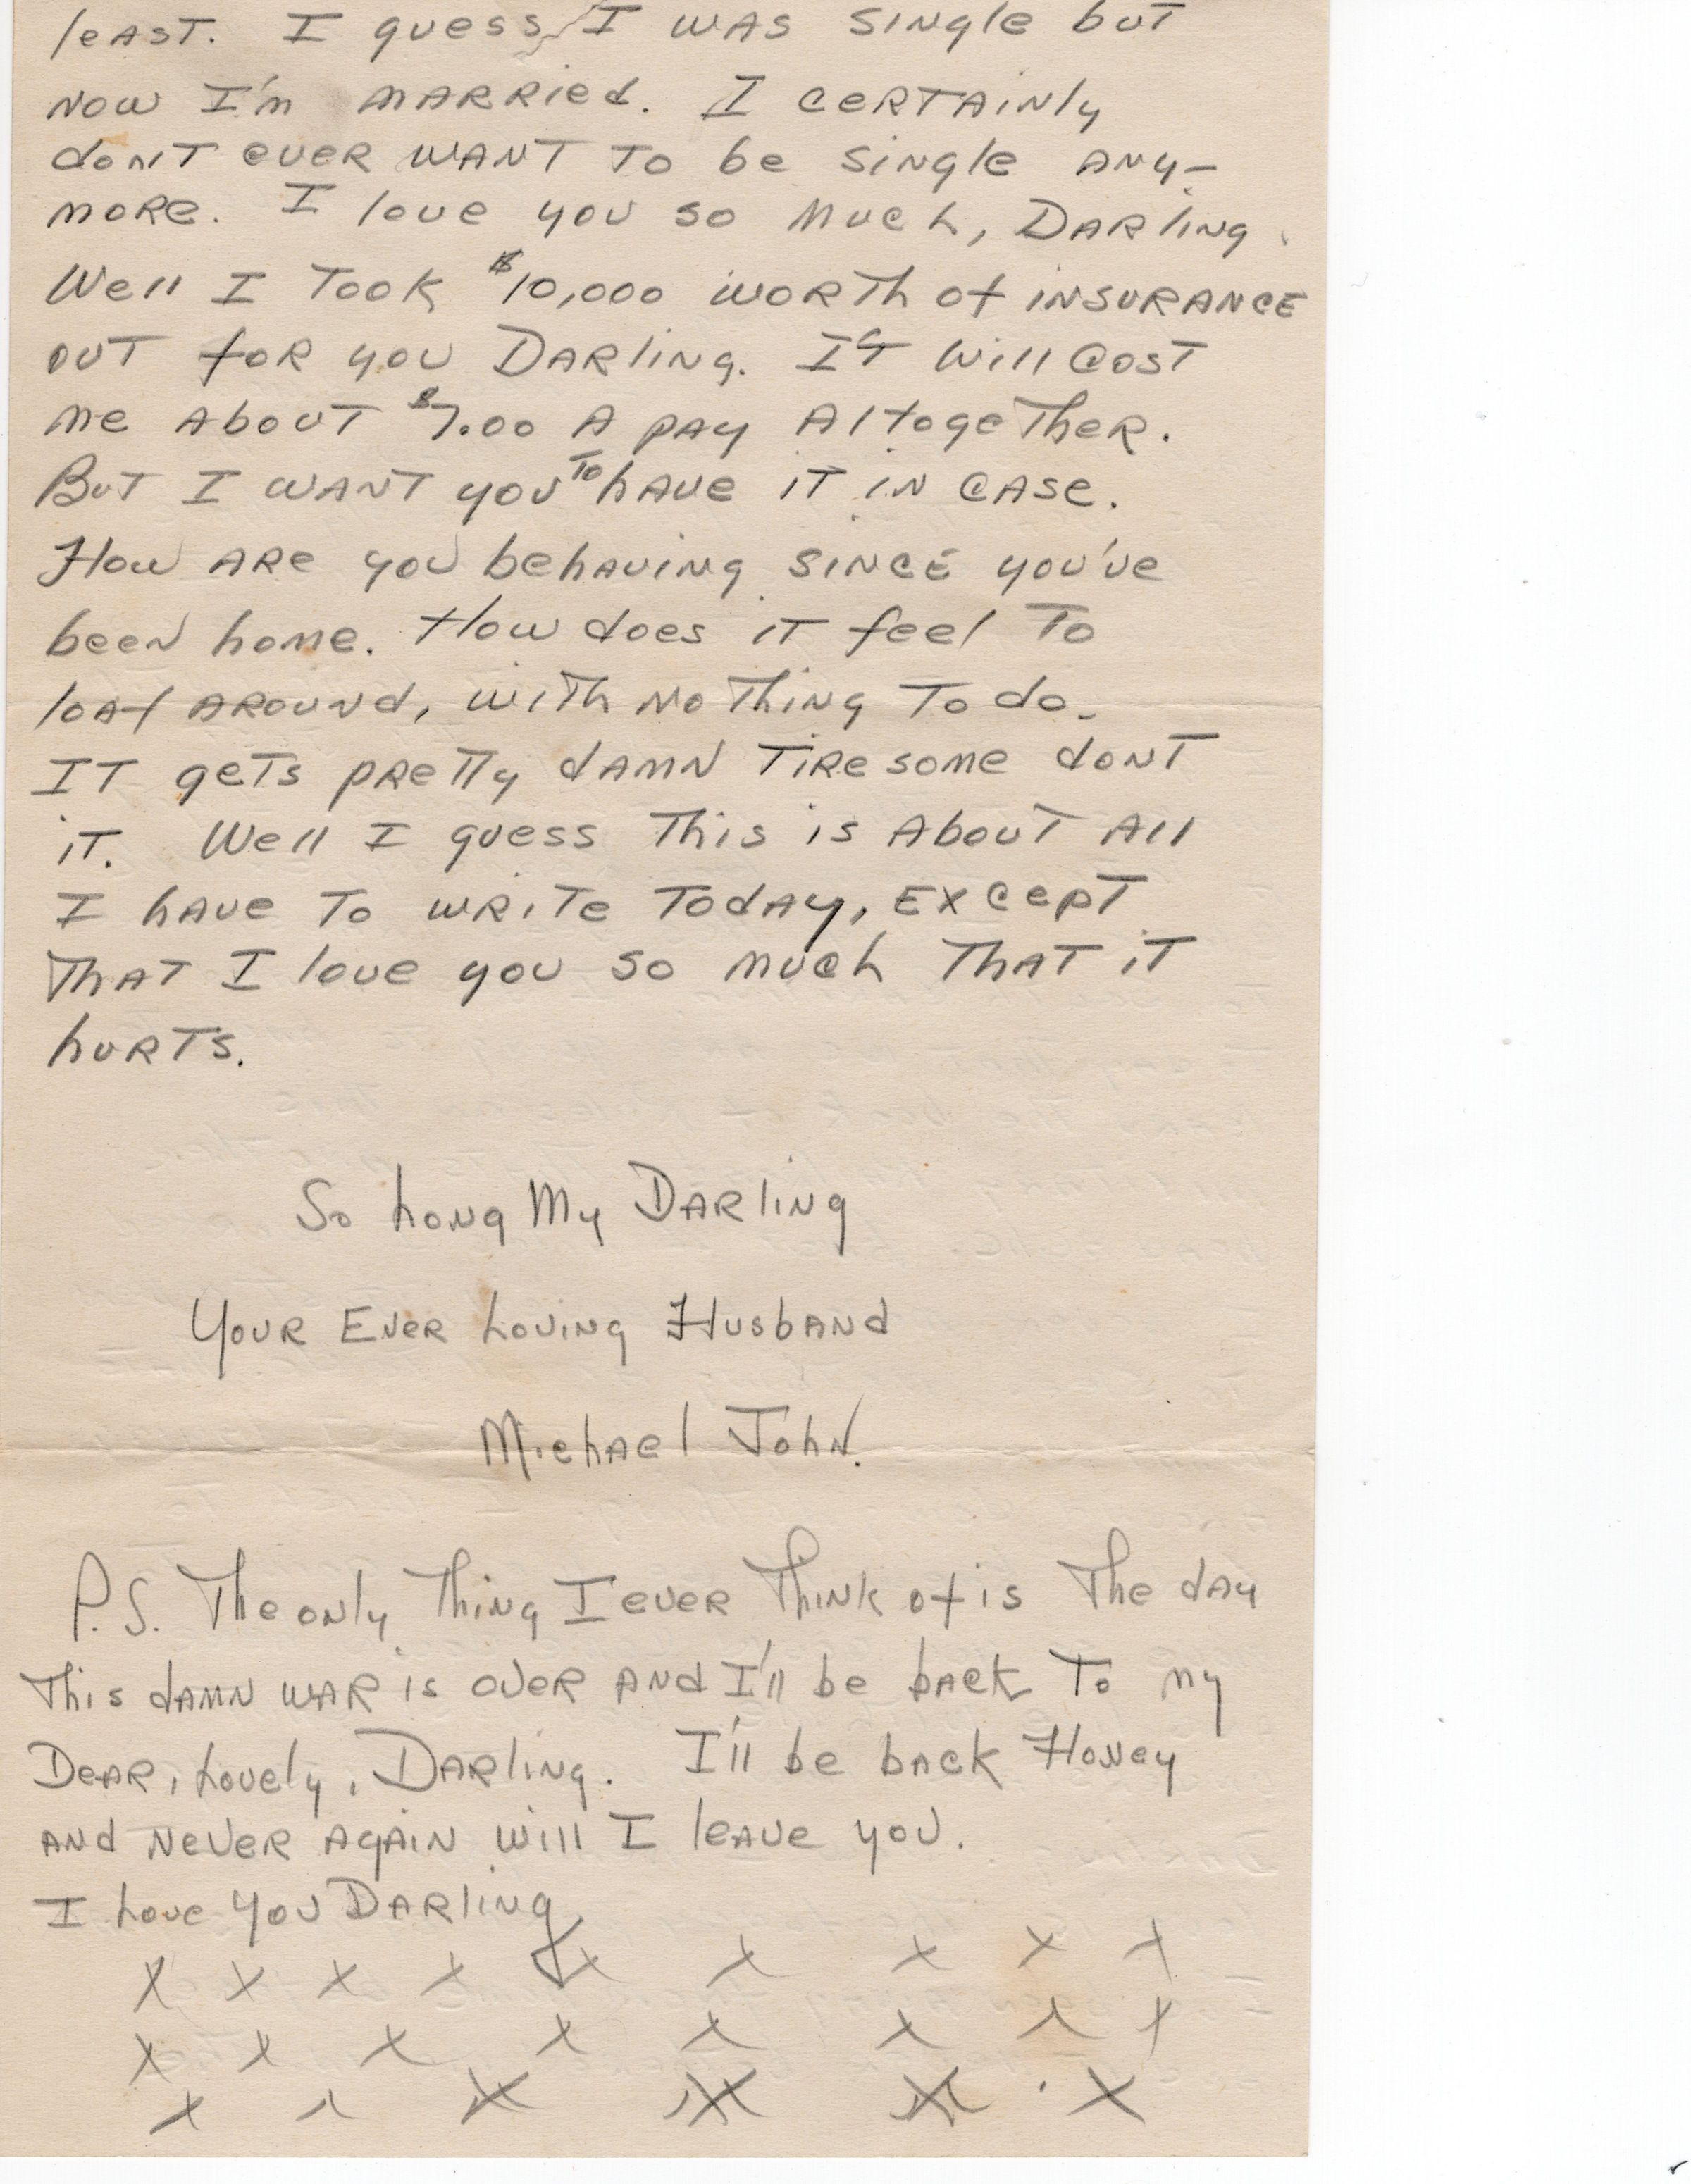 least. I guess I was single but
now I'm married. I certainly
don't ever want to be single any-
more. I love you so much, Darling.
Well I took $10,000 worth of insurance
out for you Darling. It will cost
me about $7.00 a pay altogether.
But I want you to have it in case.
How are you behaving since you've
been home. How does it feel to
loaf around, with nothing to do.
It gets pretty damn tiresome dont
it. Well I guess this is about all
I have to write today, except
that I love you so much that it
hurts.
So Long My Darling
Your Ever Loving Husband
Michael John.
P.S. The only thing I ever think of is the day
this damn war is over and I'll be back to my
Dear, Lovely, Darling. I'll be back Honey
and never again will I leave you.
I Love You Darling
x x x x x x x x x
x x x x x x x x
x x x x x x